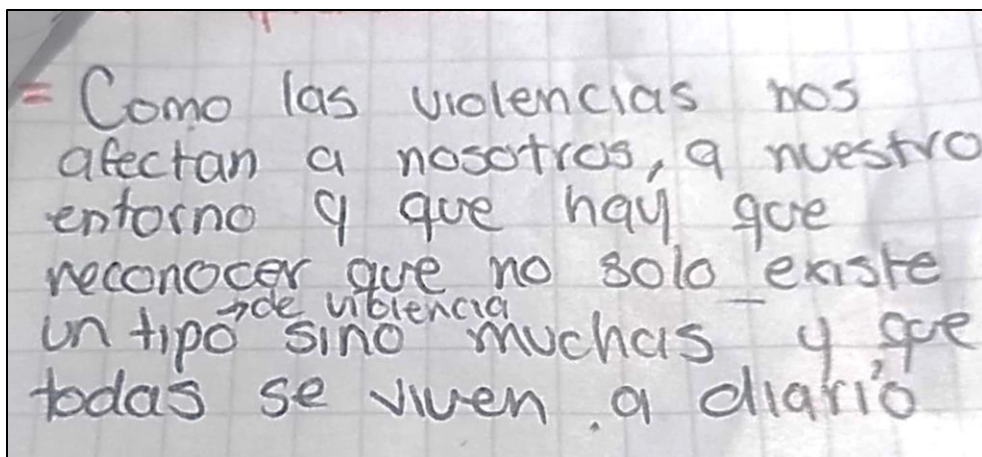 = Como las violencias nos
afectan a nosotros, a nuestro
entorno y que hay que
reconocer que no solo existe
→ de violencia
un tipo sino muchas y que
todas se viven a diario